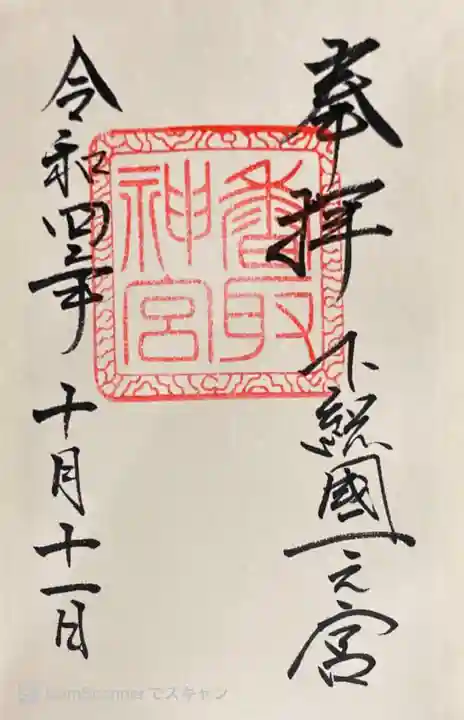 奉拝 下総國一之宮
香取
神宮
令和四年 十月十一日
CamScanner でスキャン